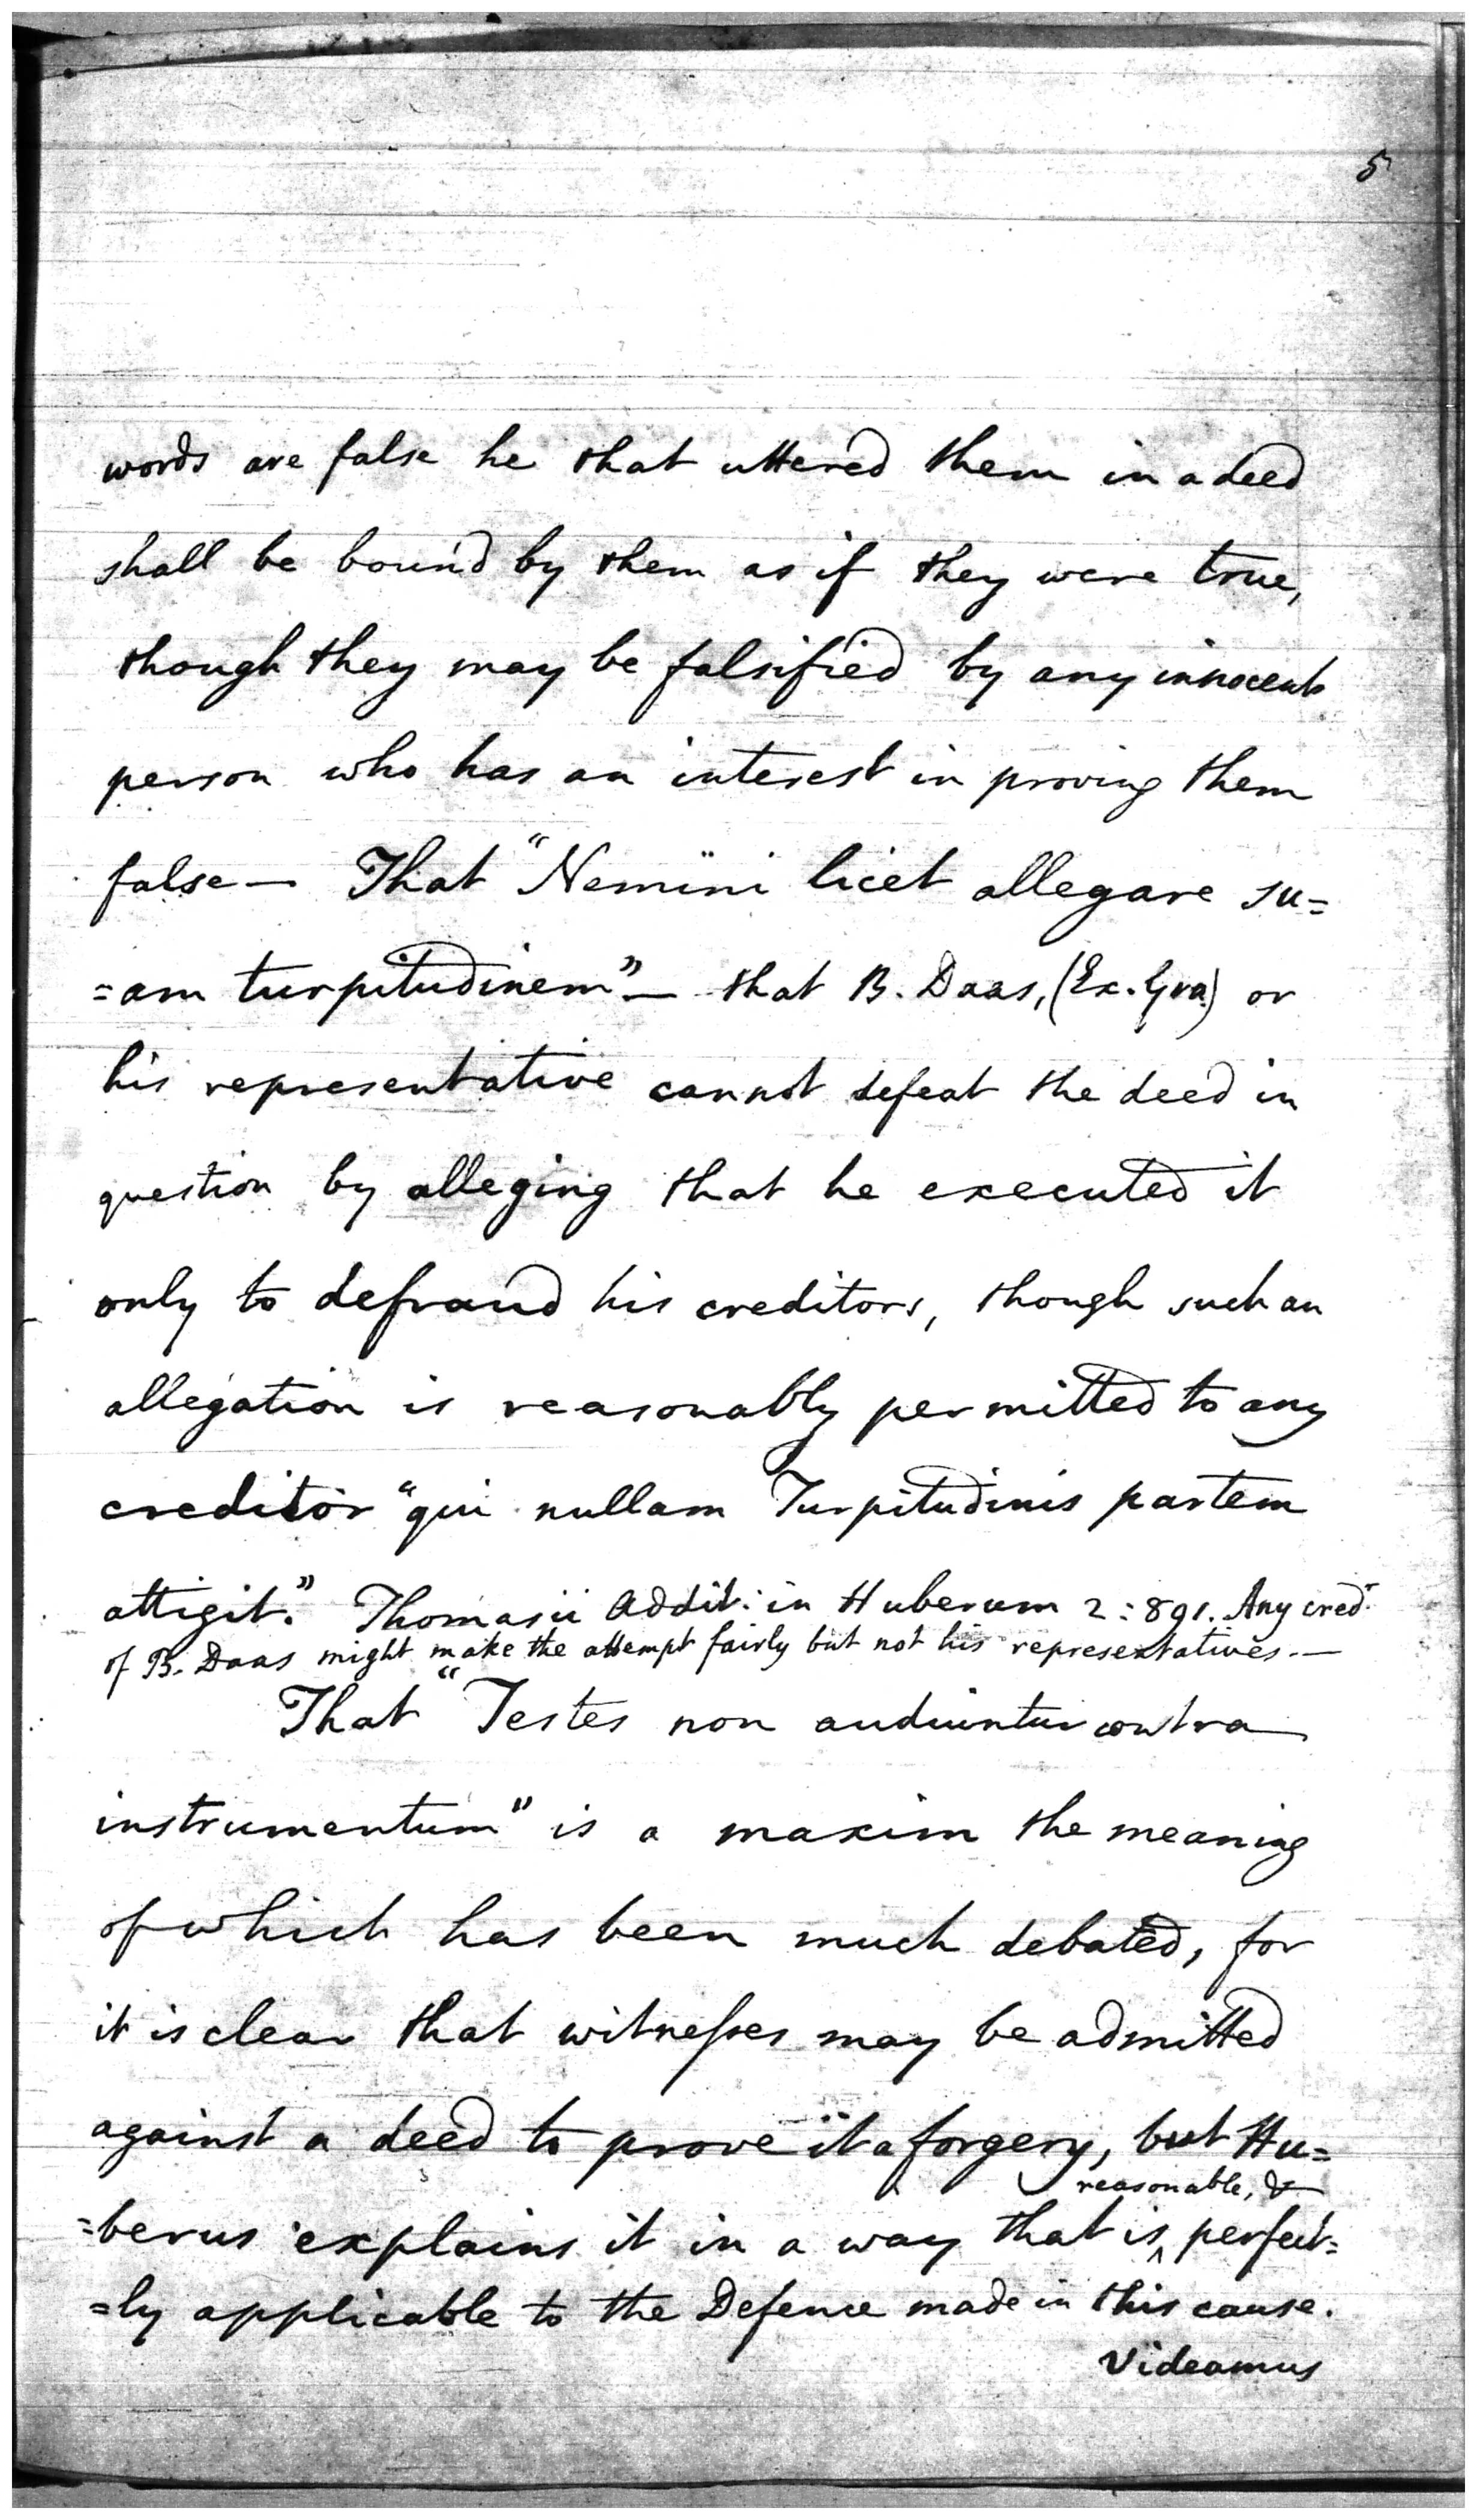 5
words are false he that uttered them in a deed
shall be bound by them as if they were true,
though they may be falsified by any innocent
person who has an interest in proving them
false — That "Nemini licet allegare su=
=am turpitudinem" — that B. Daas, (Ex. Gra) or
his representative cannot defeat the deed in
question by alleging that he executed it
only to defraud his creditors, though such an
allegation is reasonably permitted to any
creditor "qui nullam Turpitudinis partem
attigit." Thomasii Addit: in Huberum 2:891. Any cred:
of B. Daas might make the attempt fairly but not his representatives. —
That "Testes non audiuntur contra
instrumentum" is a maxim the meaning
of which has been much debated, for
it is clear that witnesses may be admitted
against a deed to prove it a forgery, but Hu=
reasonable, &
=berus explains it in a way that is ^ perfect=
=ly applicable to the Defence made in this cause.
Videamus